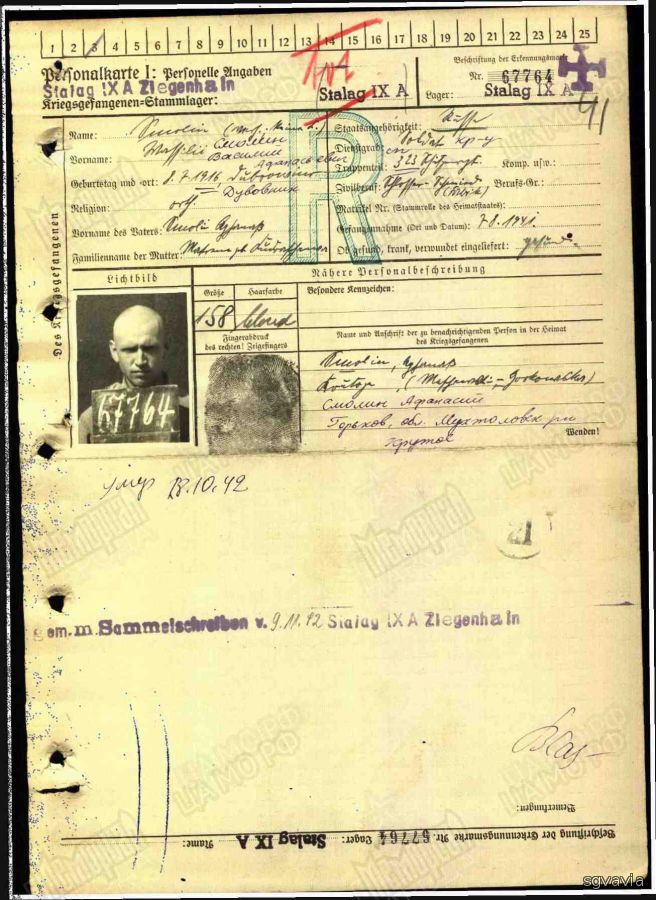 1 2 3 4 5 6 7 8 9 10 11 12 13 14 15 16 17 18 19 20 21 22 23 24 25
Personalkarte I: Personelle Angaben
Stalag IX A Ziegenhain
Kriegsgefangenen-Stammlager:
Stalag IX A
Beschriftung der Erkennungsmarke
Nr. 67764
Lager: Stalag IX A
Des Kriegsgefangenen
Name: Smolin
Смолин
Vorname: Wassilij
Василий Афанасьевич
Geburtstag und -ort: 8.7.1916
Дубовник
Religion: orth
Vorname des Vaters: Smolin
Familienname der Mutter:
R
Staatsangehörigkeit: Russe
Dienstgrad: Soldat кр-ц
Truppenteil: 323 Komp. usw.:
Zivilberuf: Schlosser Berufs-Gr.:
Matrikel Nr. (Stammrolle des Heimatstaates):
Gefangennahme (Ort und Datum): 7.8.1941.
Ob gesund, krank, verwundet eingeliefert: gesund.
Lichtbild
Nähere Personalbeschreibung
Größe
Haarfarbe
Besondere Kennzeichen:
158
blond
Fingerabdruck
des rechten! Zeigefingers
Name und Anschrift der zu benachrichtigenden Person in der Heimat
des Kriegsgefangenen
67764
Smolin,
Смолин Афанасий
Горьков. обл. р-н
Крутое
Wenden!
умер 18.10.42
21
gem. m. Sammelschreiben v. 9.11.42 Stalag IX A Ziegenhain
Bemerkungen:
Beschriftung der Erkennungsmarke Nr. 67764 Lager: Stalag IX A Name:
МЕМОРИАЛ
ЦАМО РФ
sgvavia